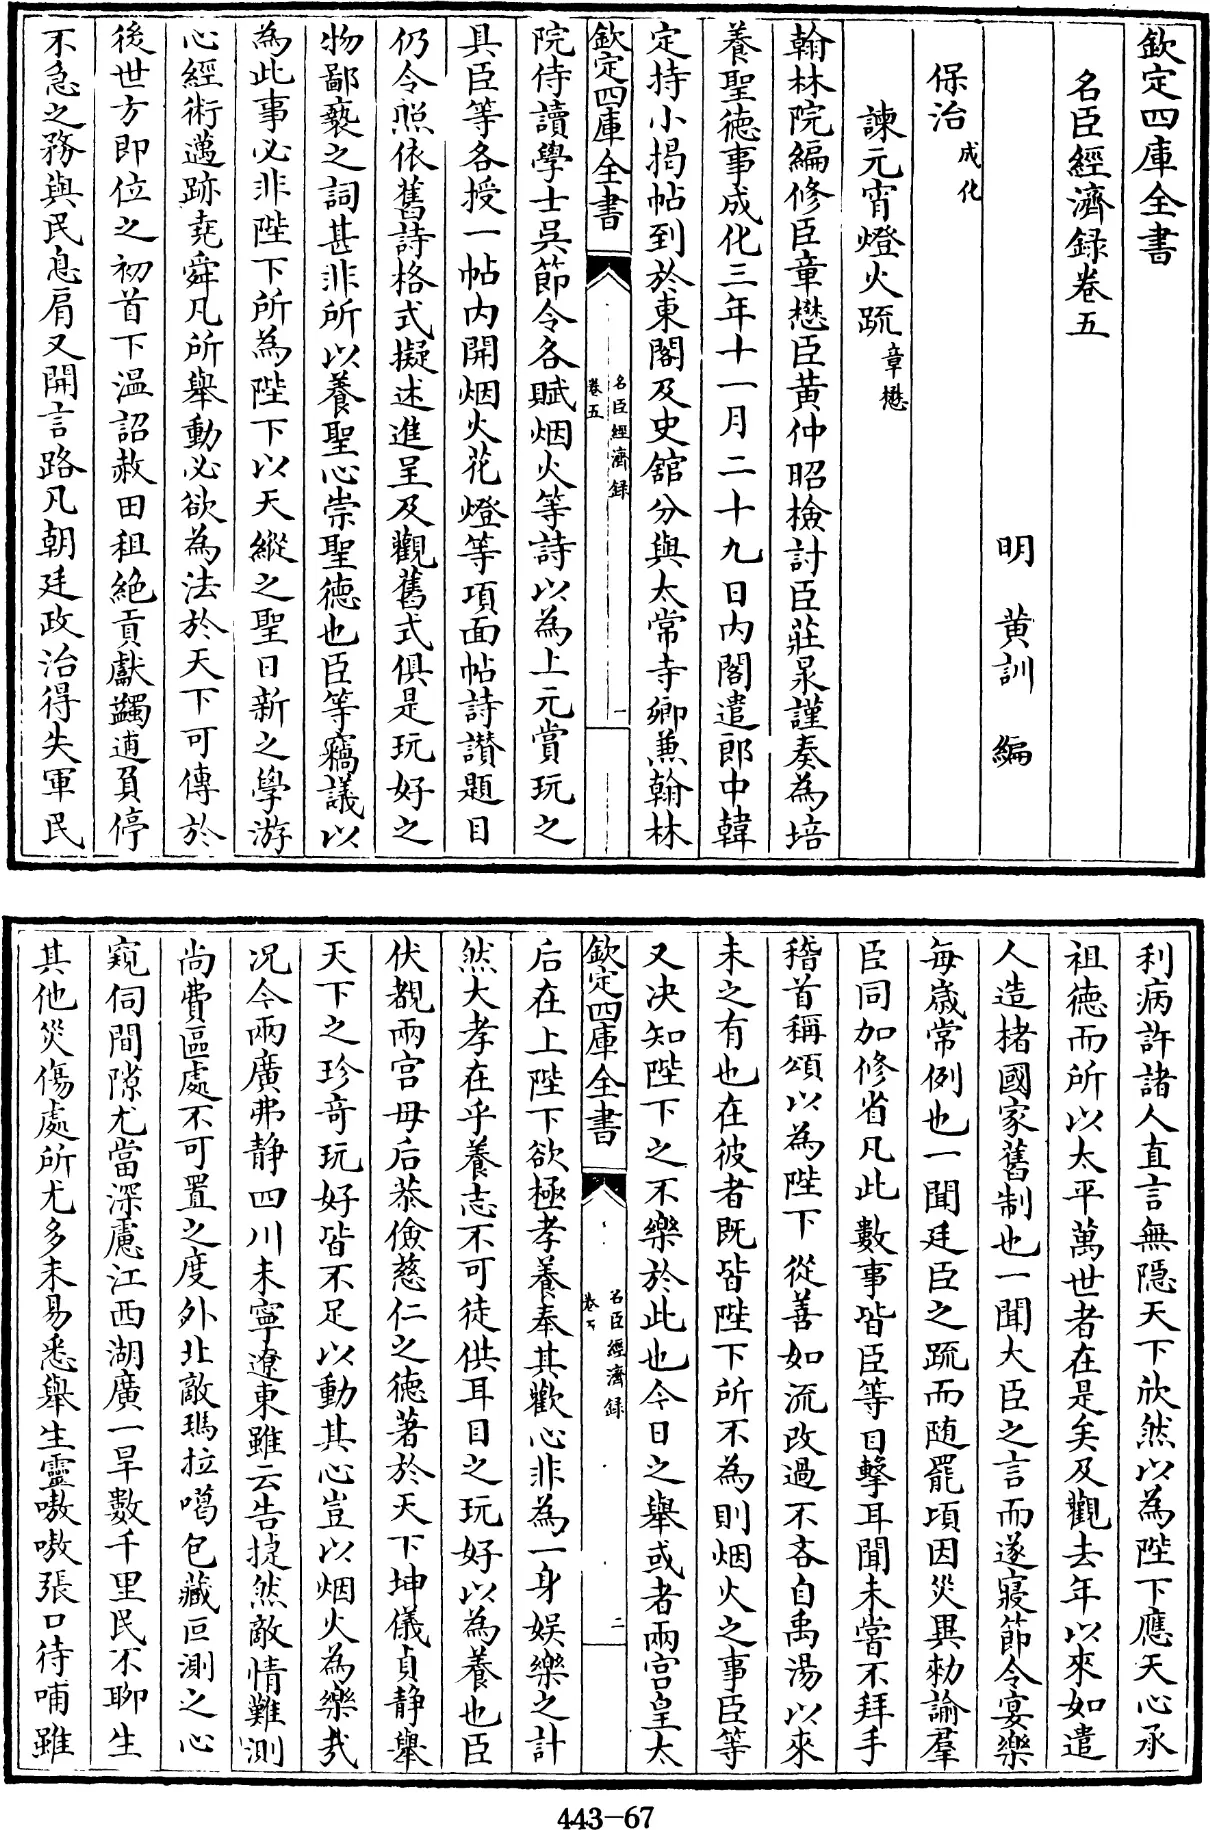 欽定四庫全書
名臣經濟録卷五
明　黄訓　編
保治成化
諫元宵燈火疏章懋
翰林院編修臣章懋臣黄仲昭檢討臣莊㫤謹奏為培
養聖徳事成化三年十一月二十九日内閣遣郎中韓
定持小揭帖到於東閣及史舘分與太常寺卿兼翰林
欽定四庫全書
名臣經濟録
卷五
一
院侍讀學士呉節令各賦烟火等詩以為上元賞玩之
具臣等各授一帖内開烟火花燈等項面帖詩讃題目
仍令照依舊詩格式擬述進呈及觀舊式俱是玩好之
物鄙褻之詞甚非所以養聖心崇聖徳也臣等竊議以
為此事必非陛下所為陛下以天縱之聖日新之學游
心經術邁跡堯舜凡所舉動必欲為法於天下可傳於
後世方即位之初首下温詔赦田租絶貢獻蠲逋負停
不急之務與民息肩又開言路凡朝廷政治得失軍民
利病許諸人直言無隠天下欣然以為陛下應天心承
祖徳而所以太平萬世者在是矣及觀去年以來如遣
人造楮國家舊制也一聞大臣之言而遂寢節令宴樂
每歳常例也一聞廷臣之疏而随罷頃因災異勑諭羣
臣同加修省凡此數事皆臣等目擊耳聞未嘗不拜手
稽首稱頌以為陛下從善如流改過不吝自禹湯以來
未之有也在彼者既皆陛下所不為則烟火之事臣等
又决知陛下之不樂於此也今日之舉或者兩宫皇太
欽定四庫全書
名臣經濟録
卷五
二
后在上陛下欲極孝養奉其歡心非為一身娯樂之計
然大孝在乎養志不可徒供耳目之玩好以為養也臣
伏覩兩宫母后恭儉慈仁之徳著於天下坤儀貞静舉
天下之珍竒玩好皆不足以動其心豈以烟火為樂㢤
况今兩廣弗静四川未寧遼東雖云告捷然敵情難測
尚費區處不可置之度外北敵瑪拉噶包藏叵測之心
窺伺間隙尤當深慮江西湖廣一旱數千里民不聊生
其他災傷處所尤多未易悉舉生靈嗷嗷張口待哺雖
443—67